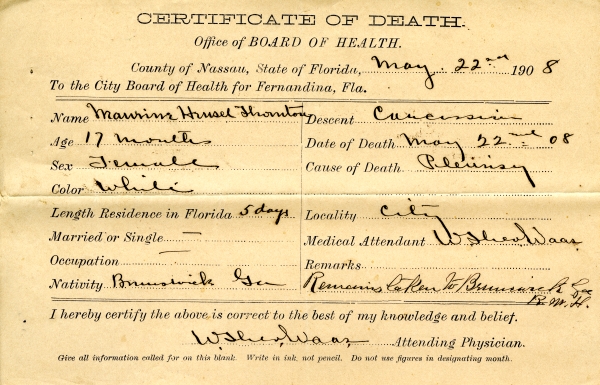 CERTIFICATE OF DEATH.
Office of BOARD OF HEALTH.
County of Nassau, State of Florida, May 22nd 1908
To the City Board of Health for Fernandina, Fla.
Name Thornton
Age 17 months
Sex Female
Color White
Length Residence in Florida 5 days
Married or Single —
Occupation —
Nativity Brunswick Ga
Descent Caucassian
Date of Death May 22nd 08
Cause of Death Pleurisy
Locality City
Medical Attendant Waas
Remarks
Remains taken to Brunswick Ga
R.W.H.
I hereby certify the above is correct to the best of my knowledge and belief.
Waas Attending Physician.
Give all information called for on this blank. Write in ink, not pencil. Do not use figures in designating month.